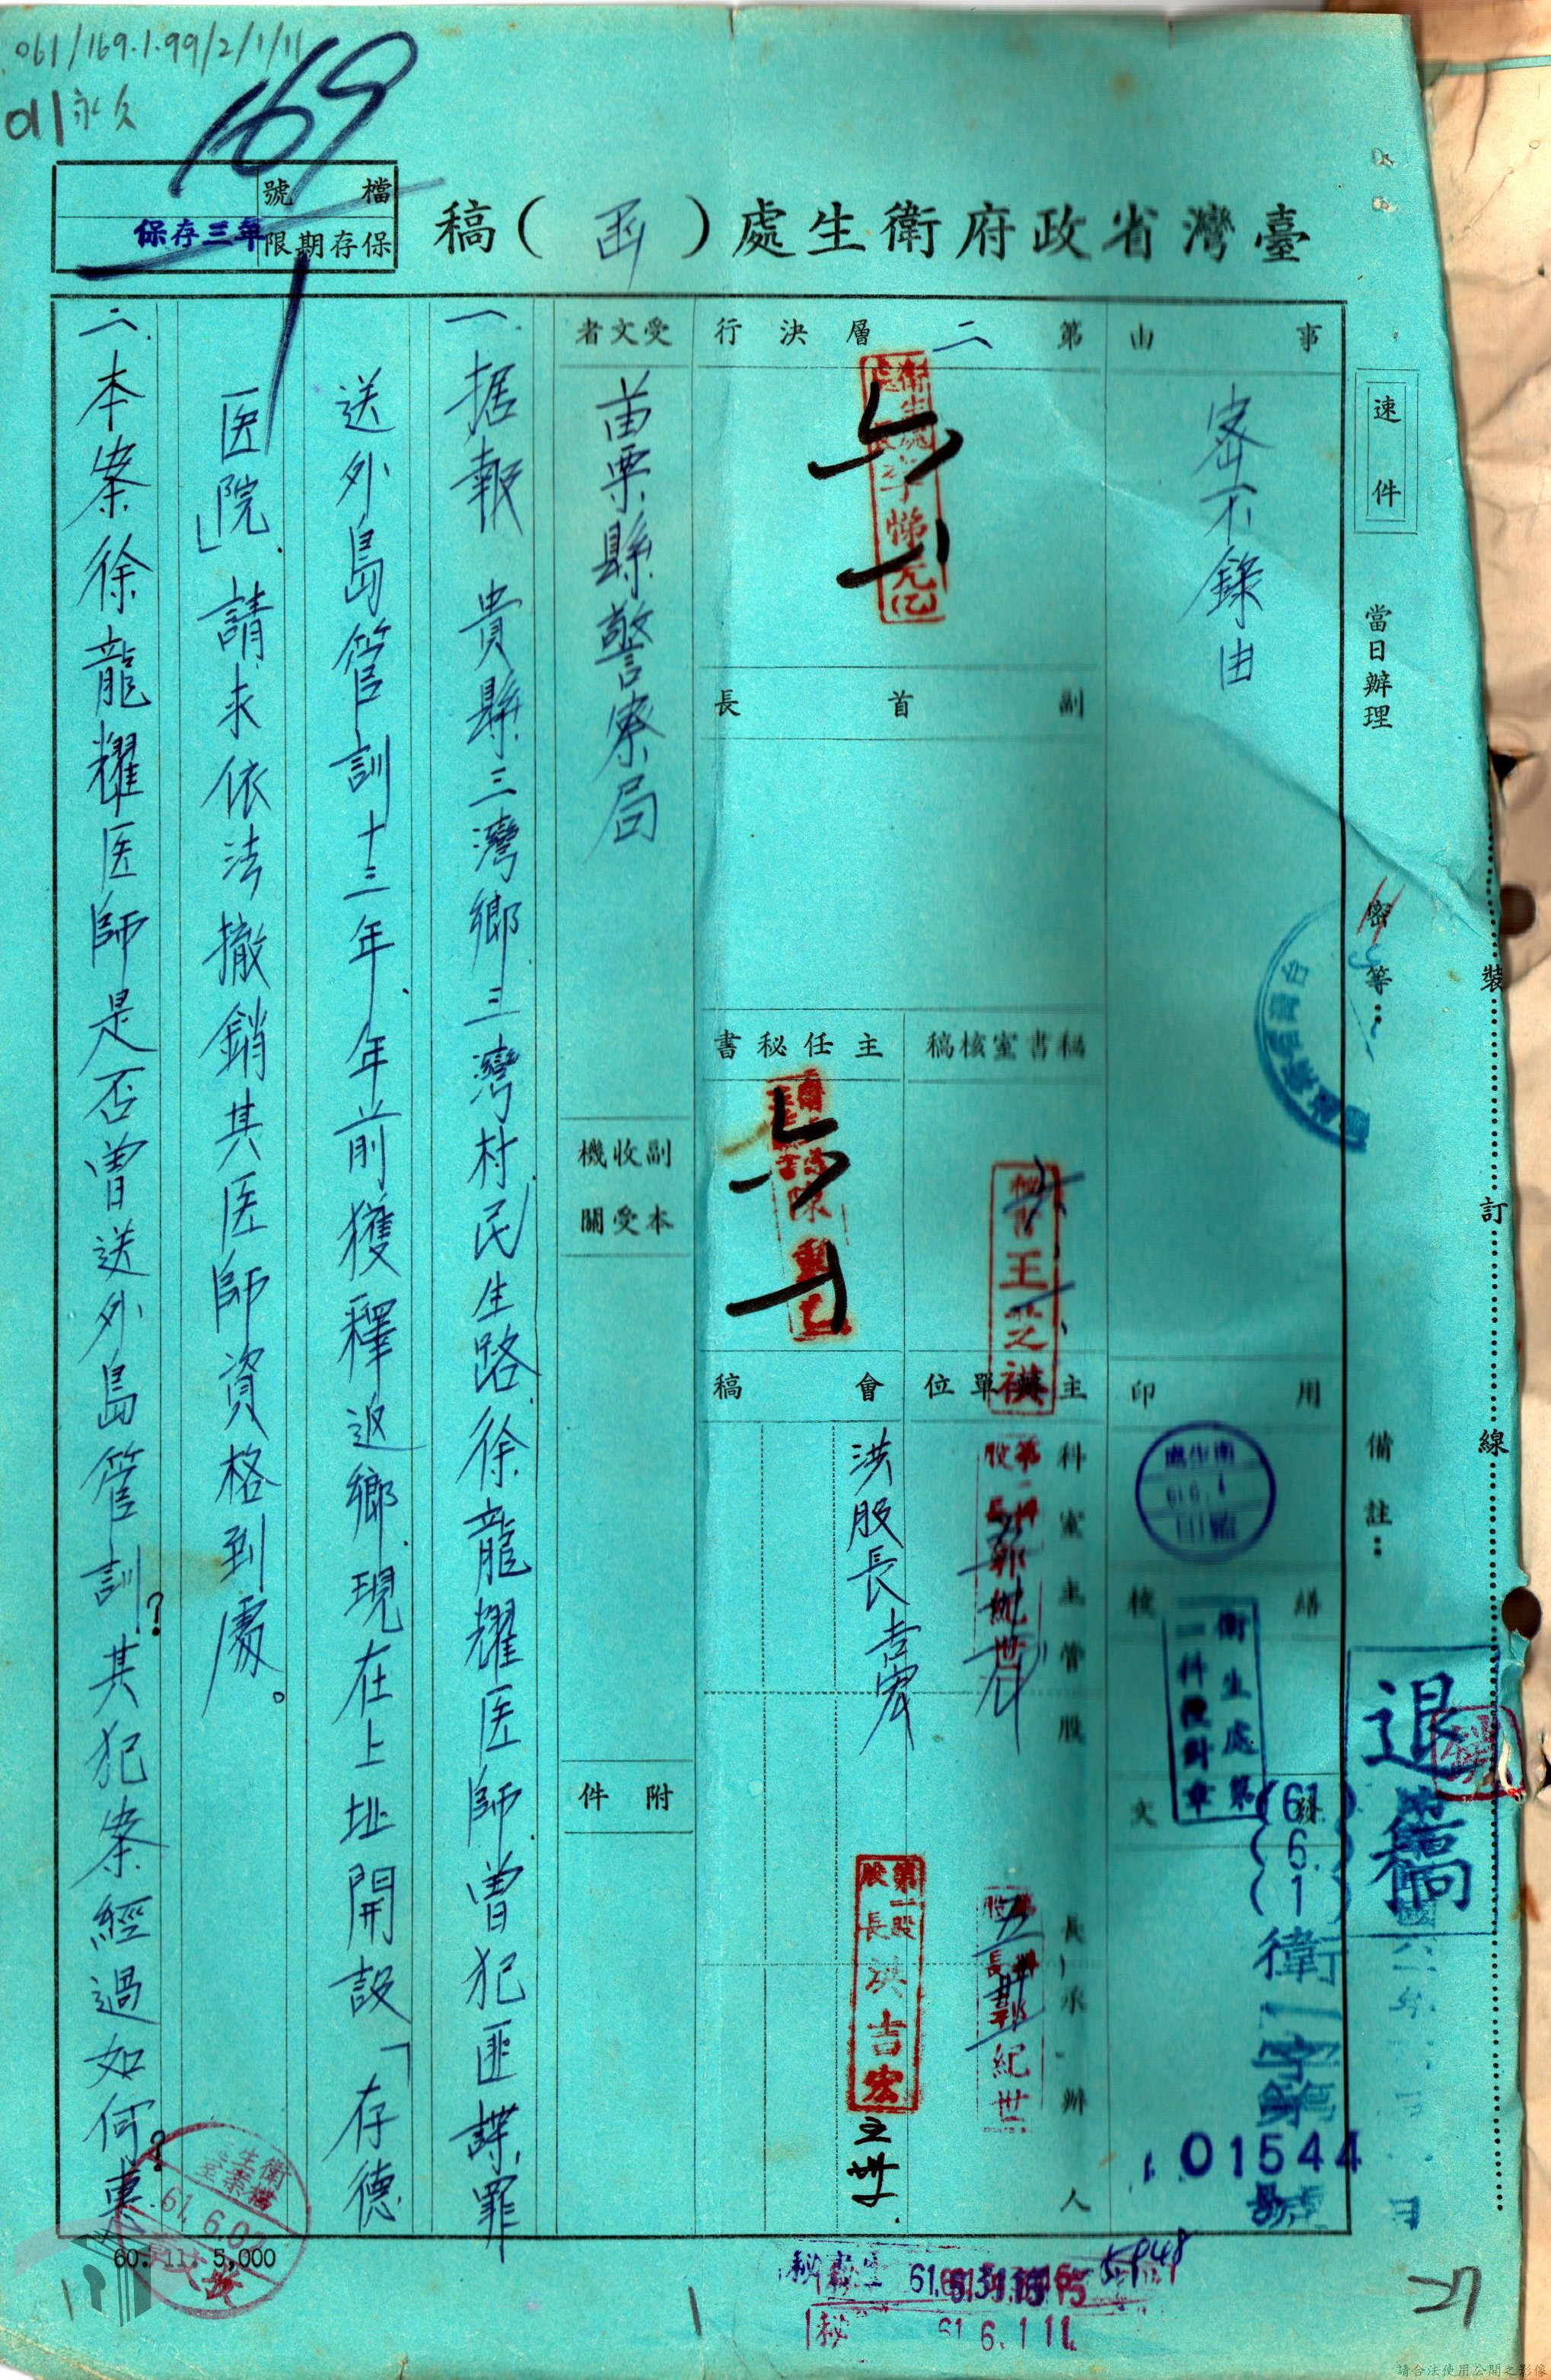 061/169.1.99/2/1/11
011永久
169
檔號
保存期限
保存三年
臺灣省政府衛生處（函）稿
速件
當日辦理
密等：
備註：
裝
訂
線
事由
密不錄由
第二層決行
副首長
秘書室核稿
主任秘書
秘書王芝祺
主辦單位
會稿
科室主管
股長
承辦人
洪股長吉宏
第一股股長洪吉宏
用印
繕校
發文
衛生處第一科校對章
退稿
(61)(6.)(1)衛一字第
01544
號
受文者
苗栗縣警察局
副本收受機關
附件
一.据報 貴縣三灣鄉三灣村民生路徐龍耀医師曾犯匪諜罪
送外島管訓十三年、年前獲釋返鄉現在上址開設「存德
医院」請求依法撤銷其医師資格到處。
二.本案徐龍耀医師是否曾送外島管訓？其犯案經過如何？
60. 11. 5,000
5948
61 6. 1 11
27
請合法使用公開之影像